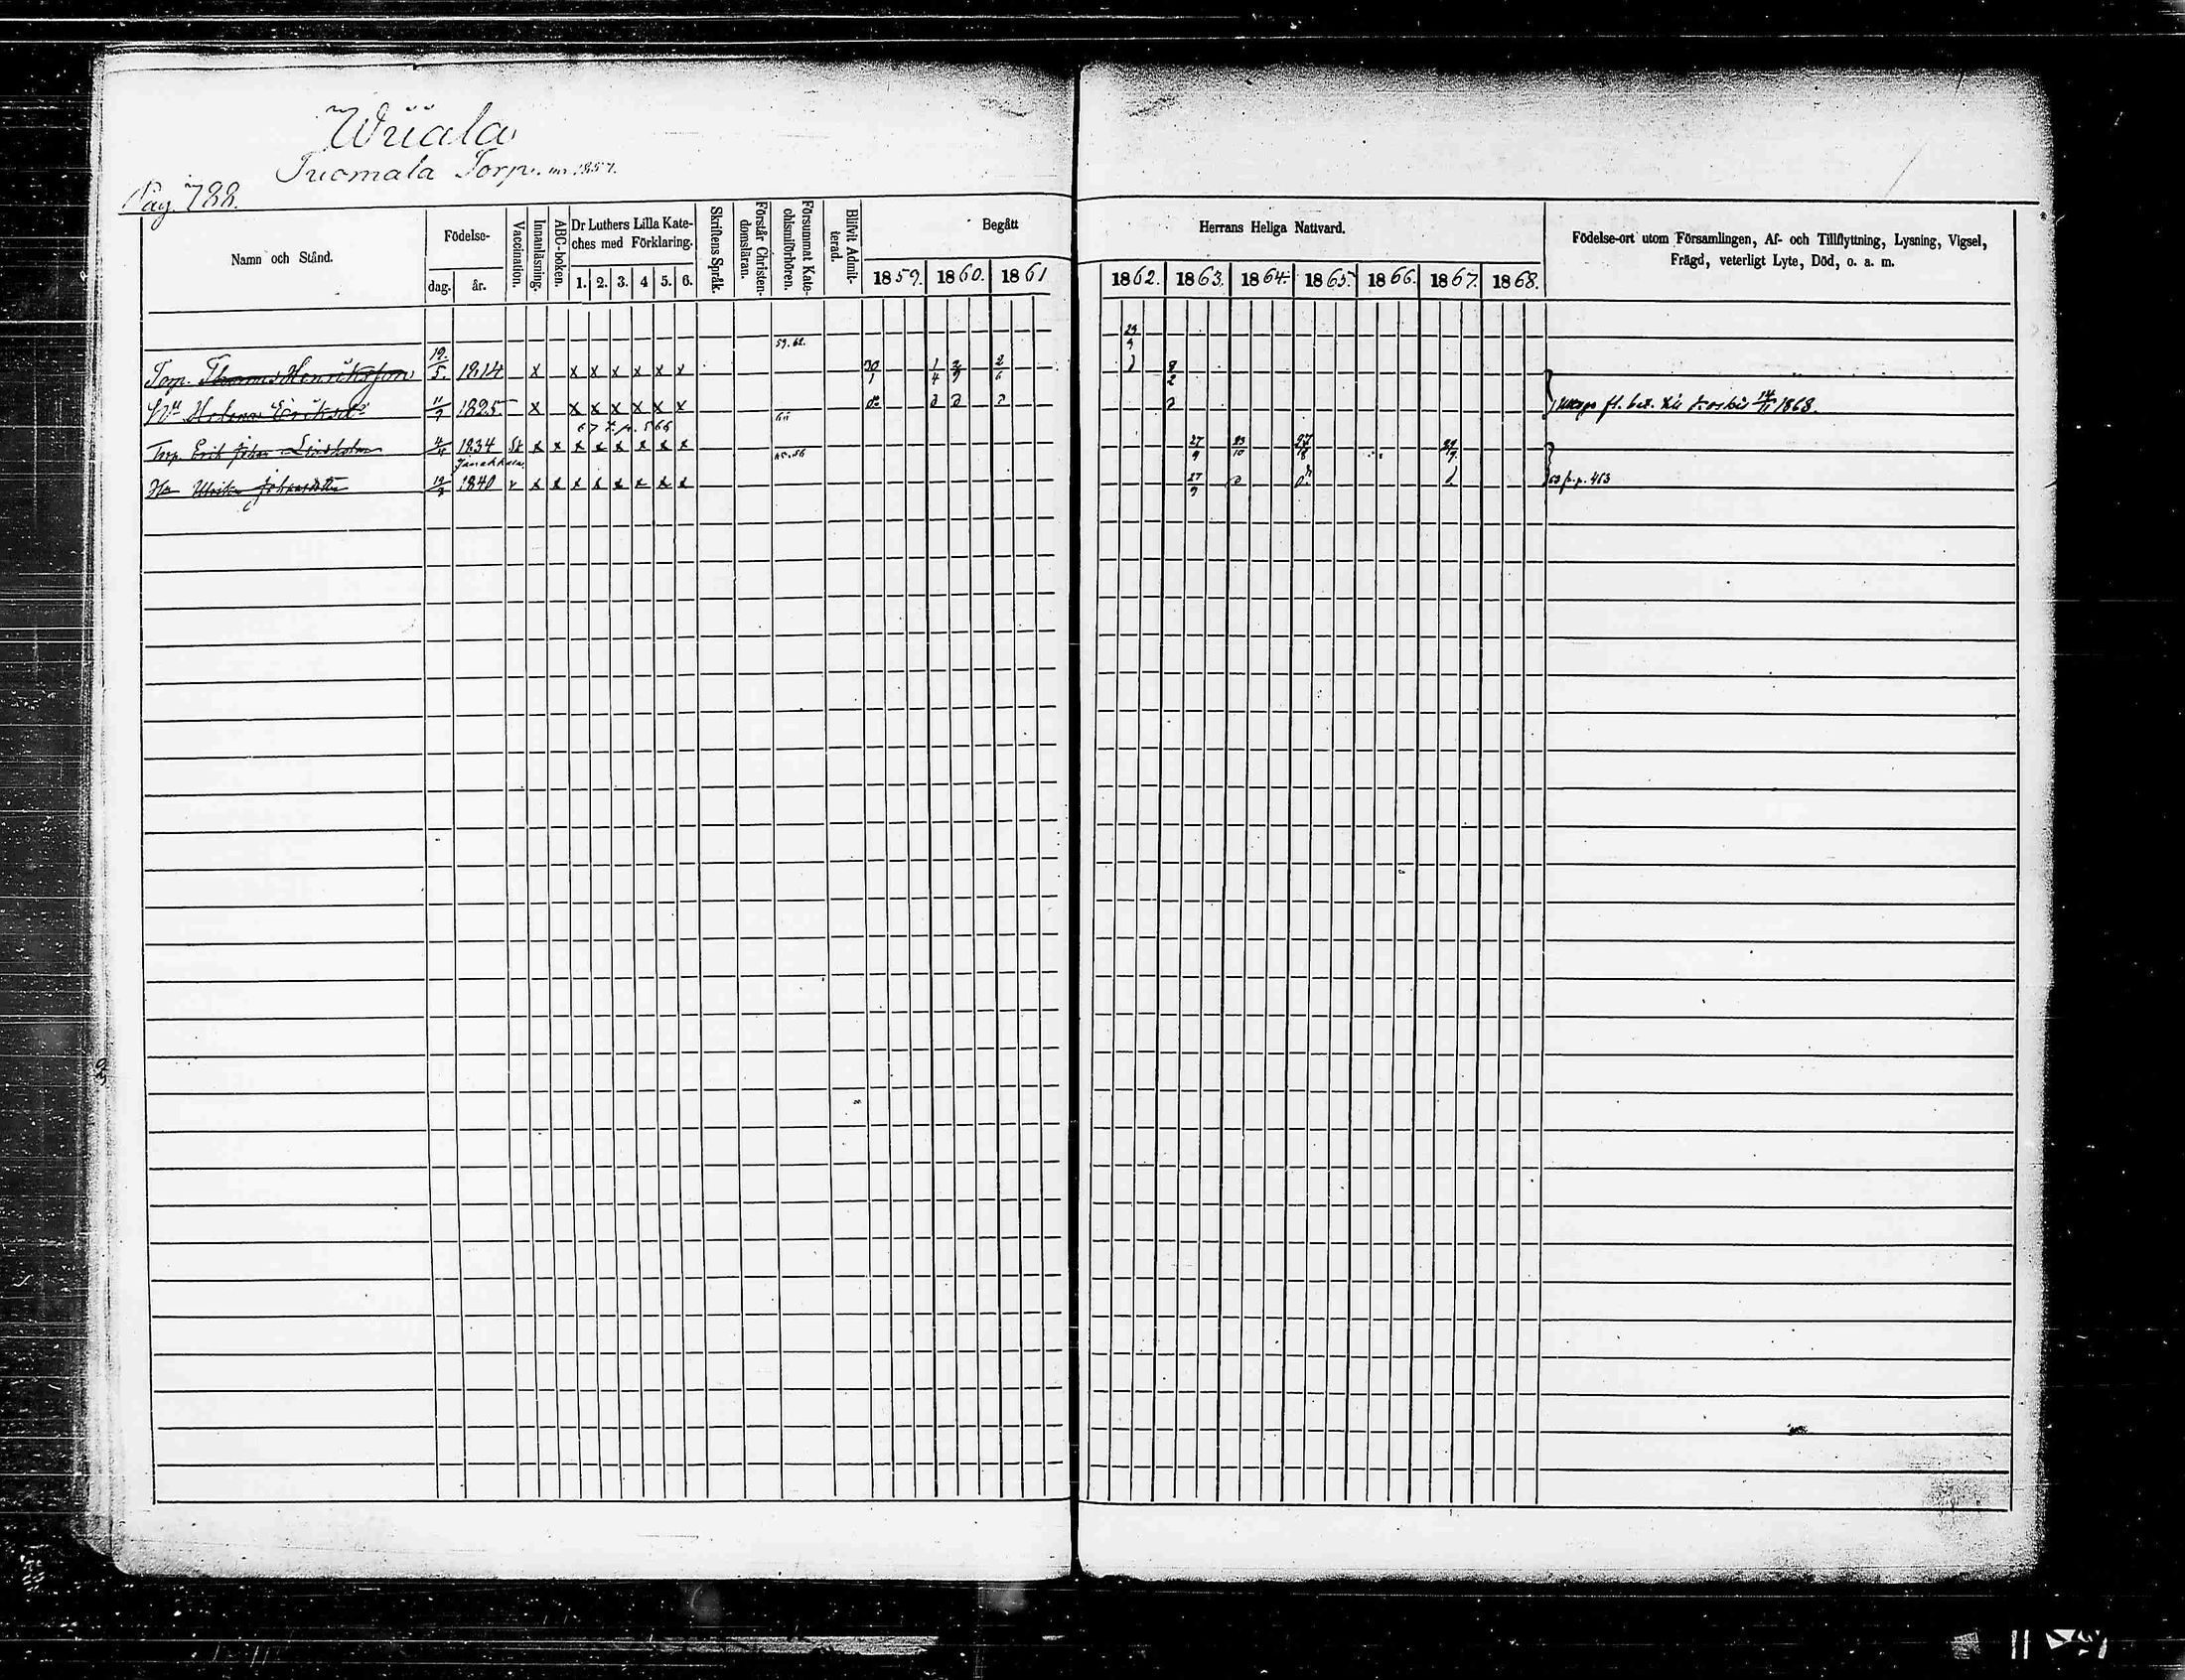 Wiiala
Tuomala Torp. 1857.
Pag. 788.
Namn och Stånd.
Födelse-
dag. år.
Vaccination.
Innanläsning.
ABC-boken.
Dr Luthers Lilla Kate-
ches med Förklaring.
1. 2. 3. 4 5. 6.
Skriftens Språk.
Förstår Christen-
domsläran.
Försummat Kate-
chismiförhören.
Blifvit Admit-
terad.
Begått
1859. 1860. 1861
Herrans Heliga Nattvard.
1862. 1863. 1864. 1865. 1866. 1867. 1868.
Födelse-ort utom Församlingen, Af- och Tillflyttning, Lysning, Vigsel,
Frägd, veterligt Lyte, Död, o. a. m.
59. 62. 23/9
Torp. Thomas Henriksson 19/5. 1814 x x x x x x x 30/1 1/4 2/6 8/2
Helena Eriksd 11/7 1825 x x x x x x x 14/11 1868.
67 t. p. 566
Torp. Erik Johan Lindholm 1834 x x x x x x x x 65.66 27/9 23/10
Janakkala
Hu Ulrika Johansdotter 1840 x x x x x x x x x 27/9 63 fr. p. 463